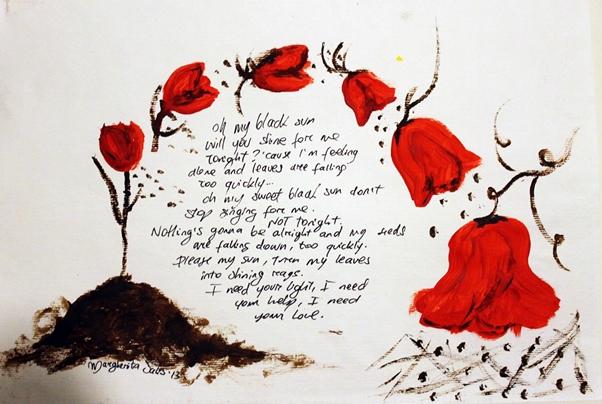 oh my black sun
will you shine fore me
Tonight? 'cause I'm feeling
alone and leaves are falling
too quickly...
oh my sweet black sun don't
stop singing fore me.
NOT Tonight.
Nothing's gonna be alright and my seeds
are falling down, too quickly.
Please my sun, turn my leaves
into shining rags.
I need your light, I need
your help, I need
your love.
Margherita '13